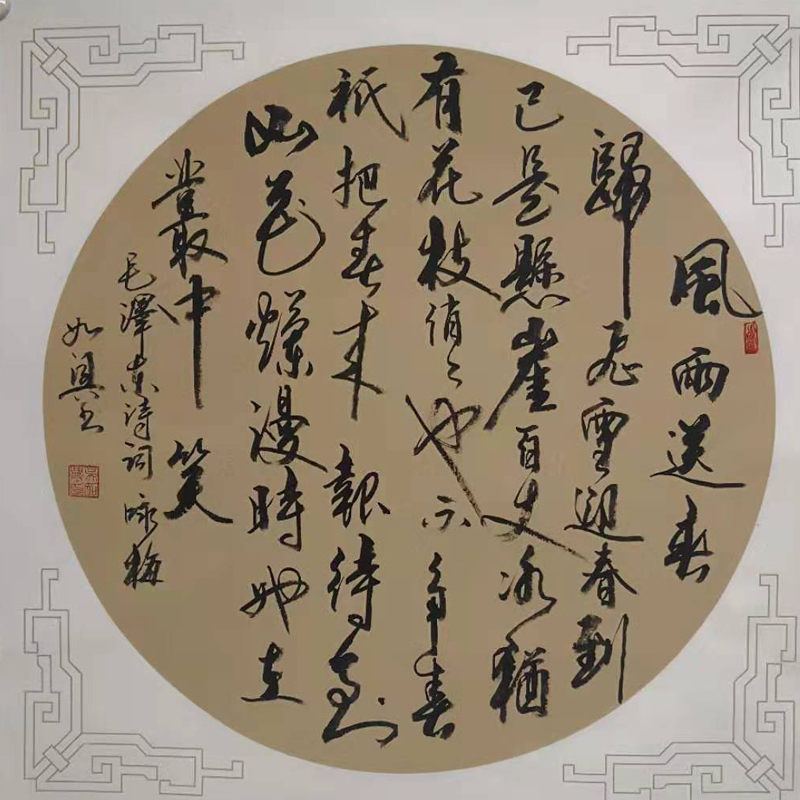 風雨送春
歸飛雪迎春到
已是懸崖百丈冰猶
有花枝俏〻也不争春
祇把春来報待到
山花爛漫時她在
叢中笑
毛澤东詩词咏梅
如书